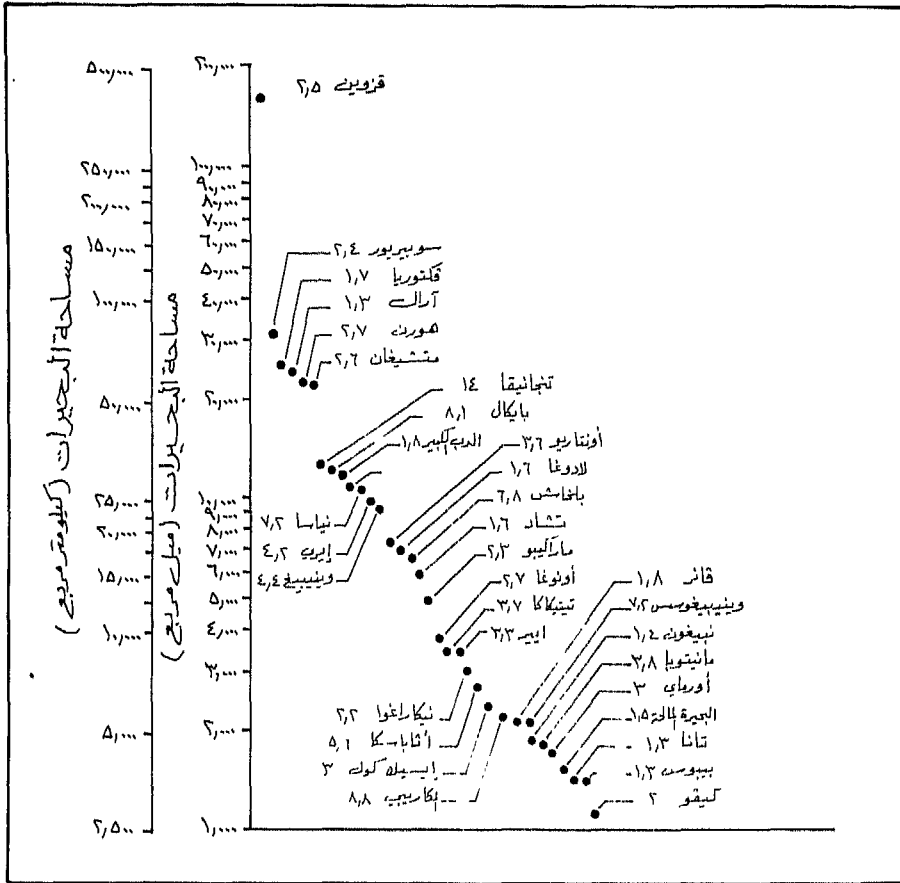 مساحة البحيرات (كيلومتر مربع)
٥٠٠,٠٠٠
٢٥٠,٠٠٠
٢٠٠,٠٠٠
١٥٠,٠٠٠
١٠٠,٠٠٠
٥٠,٠٠٠
٢٥,٠٠٠
٢٠,٠٠٠
١٥,٠٠٠
١٠,٠٠٠
٥,٠٠٠
٢,٥٠٠
مساحة البحيرات (ميل مربع)
٢٠٠,٠٠٠
١٠٠,٠٠٠
٩٠,٠٠٠
٨٠,٠٠٠
٧٠,٠٠٠
٦٠,٠٠٠
٥٠,٠٠٠
٤٠,٠٠٠
٣٠,٠٠٠
٢٠,٠٠٠
١٠,٠٠٠
٩,٠٠٠
٨,٠٠٠
٧,٠٠٠
٦,٠٠٠
٥,٠٠٠
٤,٠٠٠
٣,٠٠٠
٢,٠٠٠
١,٠٠٠
قزوين ٢,٥
سوبيريور ٢,٤
فكتوريا ١,٧
آرال ١,٣
هورن ٢,٧
متشيغان ٢,٦
تنجانيقا ١٤
بايكال ٨,١
الدب الكبير ١,٨
نياسا ٧,٢
إيري ٤,٢
وينيبيغ ٤,٤
أونتاريو ٣,٦
لادوغا ١,٦
بلخاش ٦,٨
تشاد ١,٦
ماراكيبو ٢,٣
أونوغا ٢,٧
تيتيكاكا ٣,٧
ايير ٣,٣
نيكاراغوا ٢,٢
أثاباسكا ٥,٦
إيسيك كول ٣
٨,٨
فانر ١,٨
وينيبيغوسس ٧,٢
نبيغون ١,٤
مانيتوبا ٣,٨
أورماي ٣
البحيرة المالحة ١,٥
تانا ١,٣
١,٣
كيفو ٢